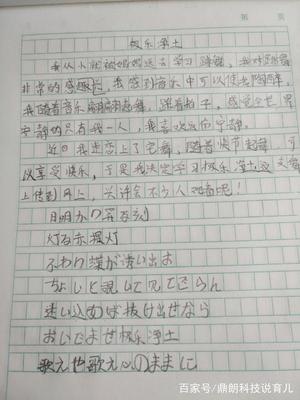 第 页
极乐净土
我从小就被妈妈送去学习跳舞，我对跳舞
非常的感兴趣，我感到音乐中可以使我陶醉，
我随着音乐翩翩起舞，跟着拍子，感觉全世界
安静的只有我一人，我喜欢这份宁静。
近日我迷恋上了宅舞，随着快节起舞，可
以享受快乐，于是我决定学习极乐净土这支舞
上传到网上，兴许会不少人观看呢！
月明かり 昇る刻
灯る赤提灯
ふわり 蝶が誘い出す
ちょいと覗いて見てごらん
迷い込めば抜け出せなら
おいでませ极乐净土
歌え也歌え心のままに
百家号/鼎朗科技说育儿